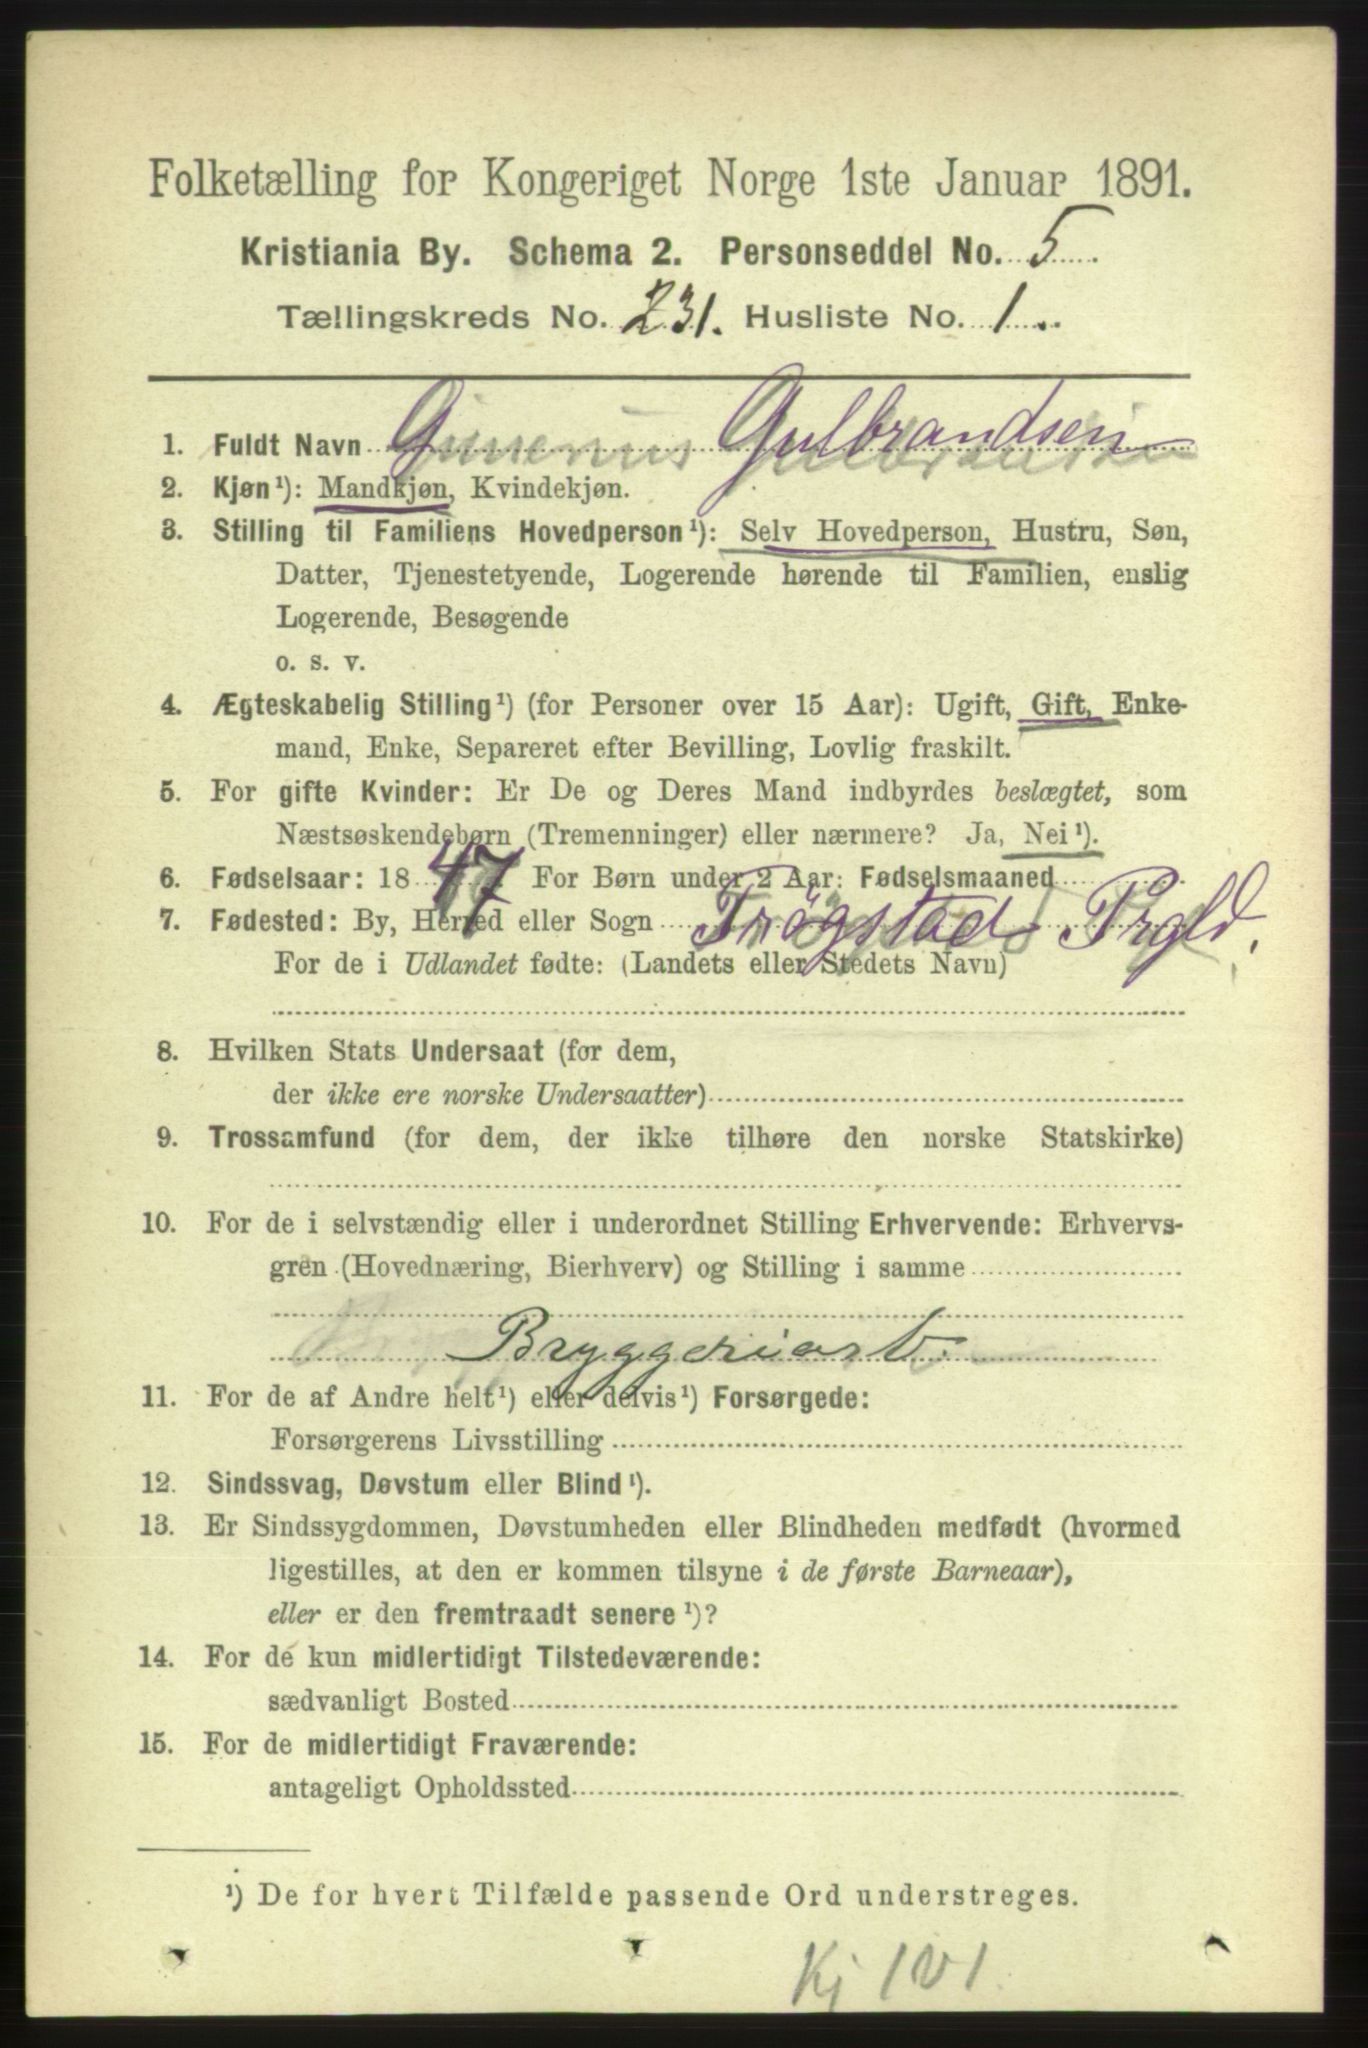 Folketælling for Kongeriget Norge 1ste Januar 1891.
Kristiania By. Schema 2. Personseddel No. 5
Tællingskreds No. 231. Husliste No. 1.
1. Fuldt Navn G. Gulbrandsen
2. Kjøn¹): Mandkjøn, Kvindekjøn.
3. Stilling til Familiens Hovedperson¹): Selv Hovedperson, Hustru, Søn,
Datter, Tjenestetyende, Logerende hørende til Familien, enslig
Logerende, Besøgende
o. s. v.
4. Ægteskabelig Stilling¹) (for Personer over 15 Aar): Ugift, Gift, Enke-
mand, Enke, Separeret efter Bevilling, Lovlig fraskilt.
5. For gifte Kvinder: Er De og Deres Mand indbyrdes beslægtet, som
Næstsøskendebørn (Tremenninger) eller nærmere? Ja, Nei¹).
6. Fødselsaar: 1847 For Børn under 2 Aar: Fødselsmaaned
7. Fødested: By, Herred eller Sogn Trøgstad Prgld.
For de i Udlandet fødte: (Landets eller Stedets Navn)
8. Hvilken Stats Undersaat (for dem,
der ikke ere norske Undersaatter)
9. Trossamfund (for dem, der ikke tilhøre den norske Statskirke)
10. For de i selvstændig eller i underordnet Stilling Erhvervende: Erhvervs-
gren (Hovednæring, Bierhverv) og Stilling i samme
Bryggeriarb.
11. For de af Andre helt¹) eller delvis¹) Forsørgede:
Forsørgerens Livsstilling
12. Sindssvag, Døvstum eller Blind¹).
13. Er Sindssygdommen, Døvstumheden eller Blindheden medfødt (hvormed
ligestilles, at den er kommen tilsyne i de første Barneaar),
eller er den fremtraadt senere¹)?
14. For de kun midlertidigt Tilstedeværende:
sædvanligt Bosted
15. For de midlertidigt Fraværende:
antageligt Opholdssted
¹) De for hvert Tilfælde passende Ord understreges.
Kj 101